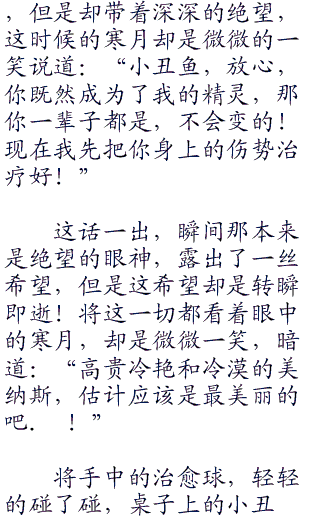 ，但是却带着深深的绝望，
这时候的寒月却是微微的一
笑说道：“小丑鱼，放心，
你既然成为了我的精灵，那
你一辈子都是，不会变的！
现在我先把你身上的伤势治
疗好！”
这话一出，瞬间那本来
是绝望的眼神，露出了一丝
希望，但是这希望却是转瞬
即逝！将这一切都看着眼中
的寒月，却是微微一笑，暗
道：“高贵冷艳和冷漠的美
纳斯，估计应该是最美丽的
吧．！”
将手中的治愈球，轻轻
的碰了碰，桌子上的小丑